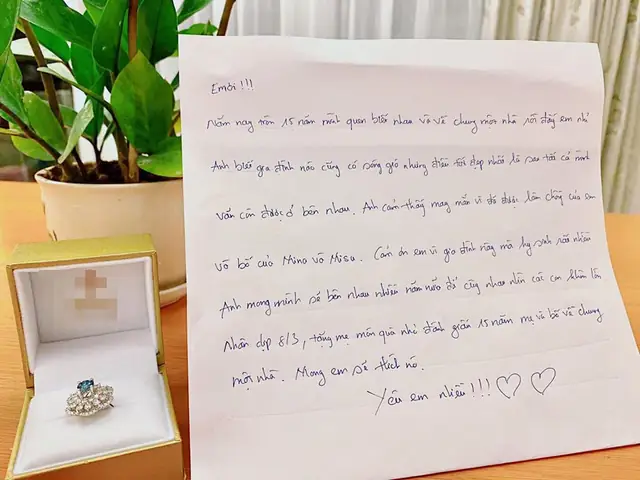 Emơi!!!
Năm nay tròn 15 năm mình quen biết nhau và về chung một nhà rồi đấy em nhỉ
Anh biết gia đình nào cũng có sóng gió nhưng điều tốt đẹp nhất là sau tất cả mình
vẫn còn được ở bên nhau. Anh cảm thấy may mắn vì đã được làm chồng của em
và bố của Mina và Misu. Cám ơn em vì gia đình này mà hy sinh rất nhiều
Anh mong mình sẽ bên nhau nhiều năm nữa để cùng nhau nhìn các con khôn lớn
Nhân dịp 8/3, tặng mẹ món quà nhỏ đánh giấu 15 năm mẹ và bố về chung
một nhà. Mong em sẽ thích nó.
Yêu em nhiều!!! ♡ ♡